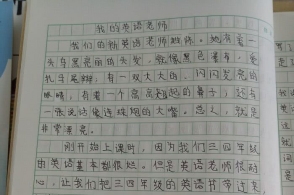 我的英语老师
我们的新英语老师姓陈。她有着一
头乌黑亮丽的头发,就像黑色瀑布,爱
扎马尾辫,有一双大大的,闪闪发亮的
眼睛,有着一个高高翘起的鼻子,还有
一张说话像连珠炮的大嘴。总之,就是
非常漂亮。
刚开始上课时,因为我们三四年级
的英语基本都很烂。但是英语老师很耐
心,让我们把三四年级的英语书带过